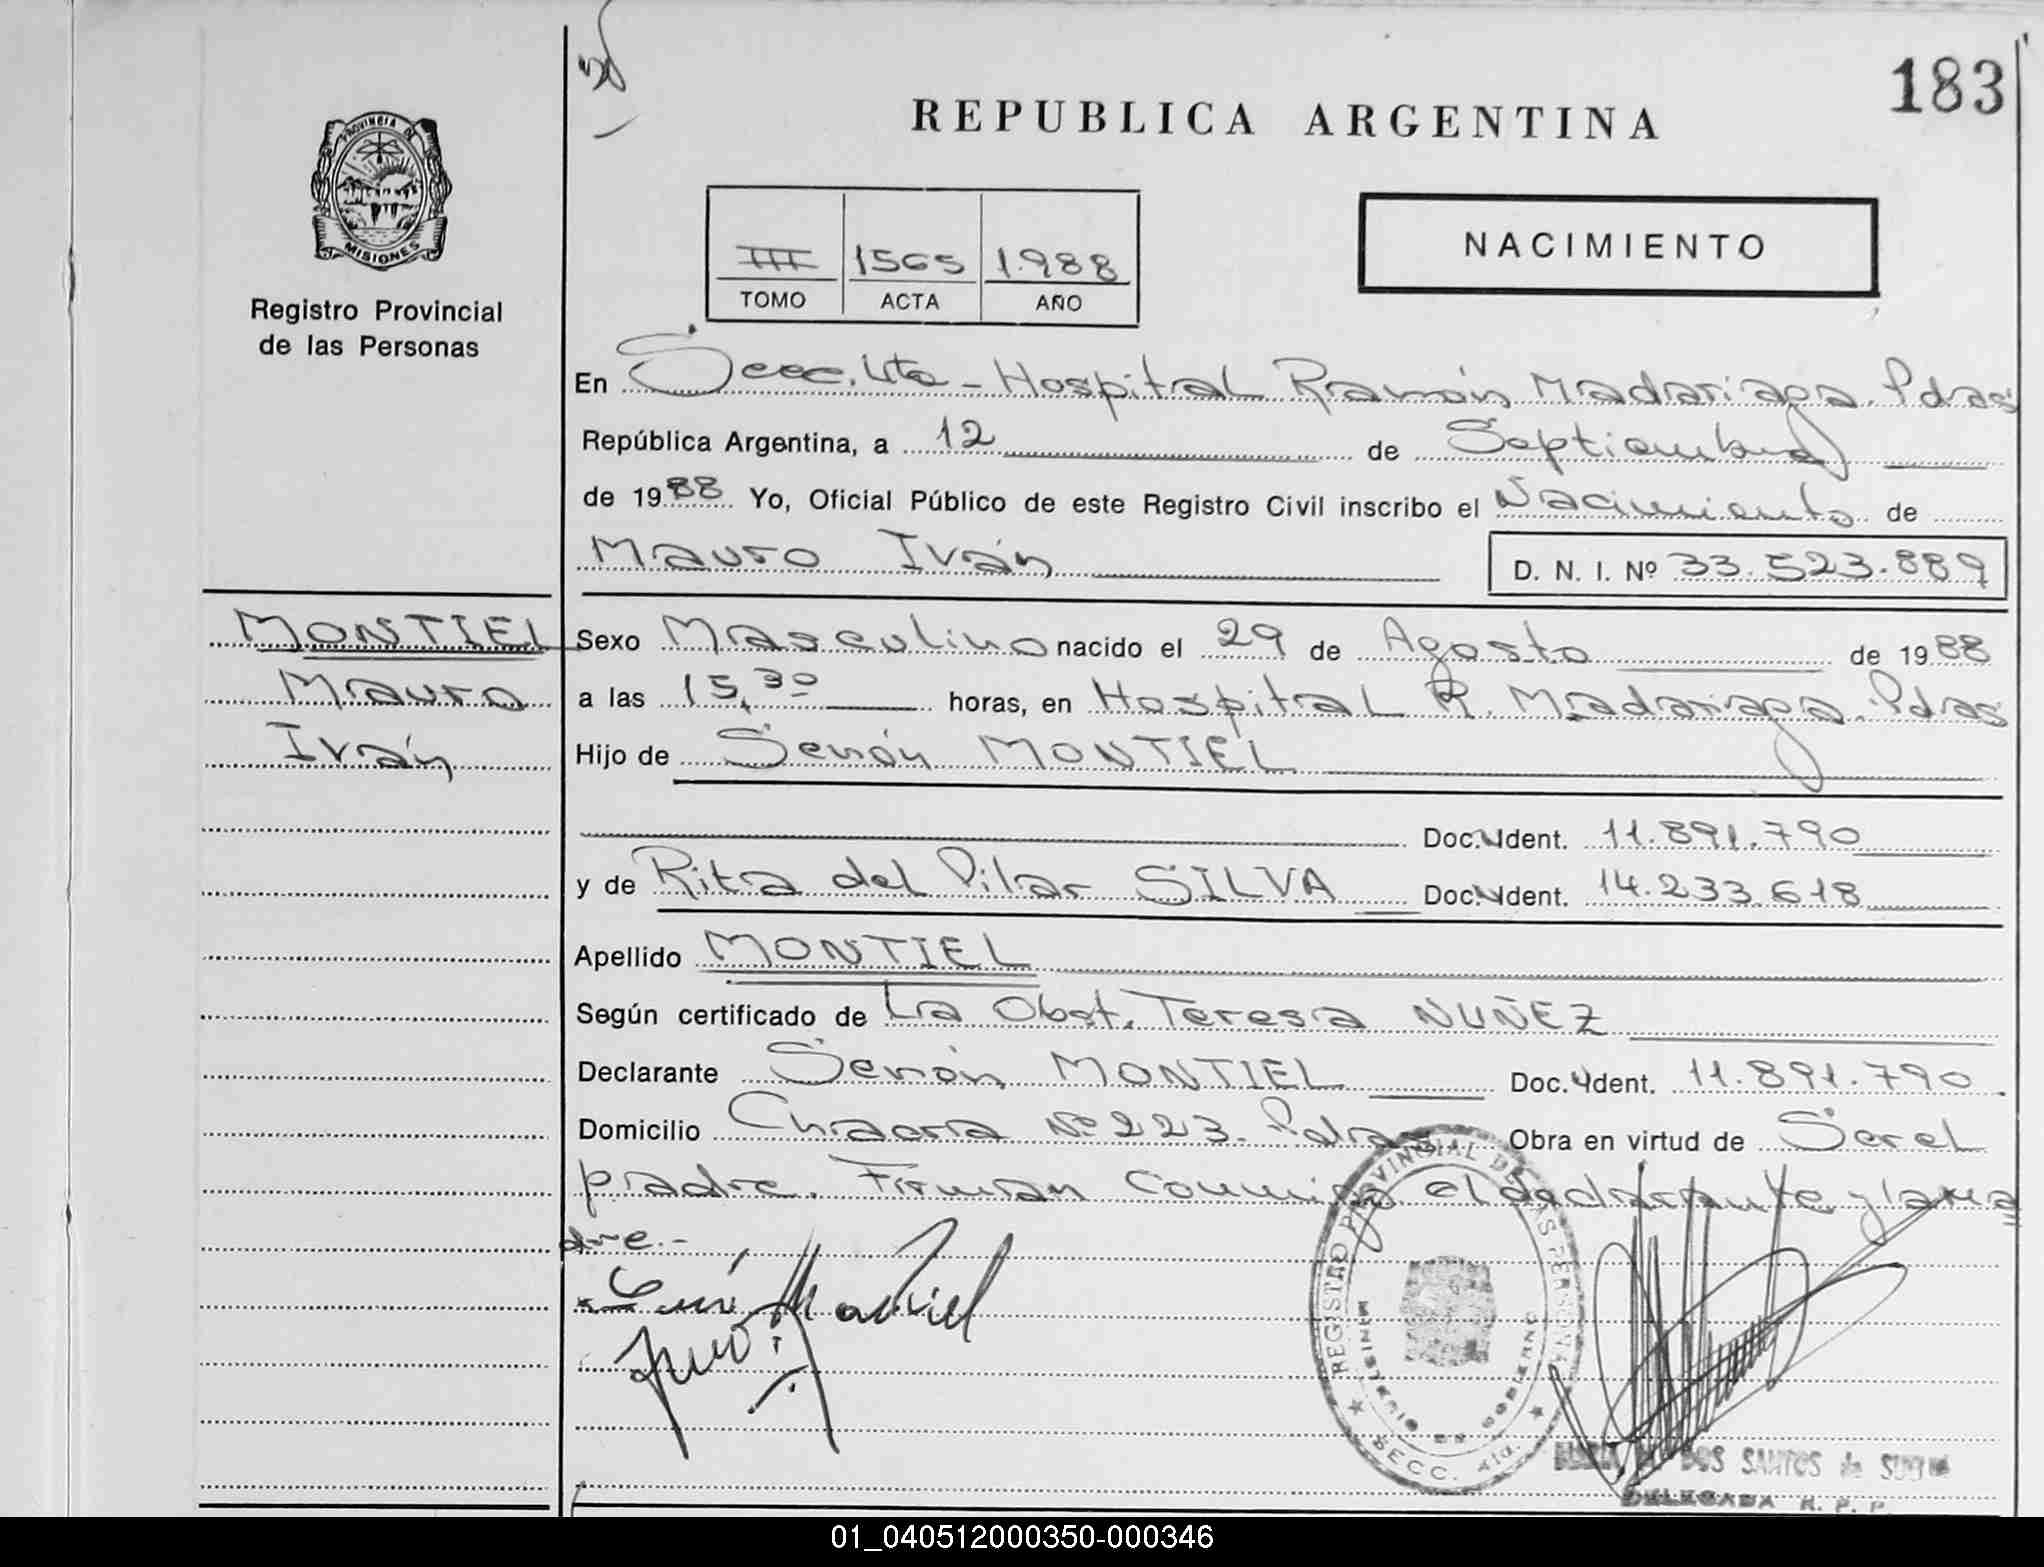 183
REPUBLICA ARGENTINA
PROVINCIA DE
MISIONES
Registro Provincial
de las Personas
III 1565 1.988
TOMO ACTA AÑO
NACIMIENTO
En Secc. 4ta - Hospital Ramón Madariaga. Pdas
República Argentina, a 12 de Septiembre
de 1988 Yo, Oficial Público de este Registro Civil inscribo el Nacimiento de
Mauro Iván D. N. I. Nº 33.523.889
MONTIEL
Mauro
Iván
Sexo Masculino nacido el 29 de Agosto de 1988
a las 15,30 horas, en Hospital R. Madariaga. Pdas
Hijo de Senón MONTIEL
Doc. Ident. 11.891.790
y de Rita del Pilar SILVA Doc. Ident. 14.233.618
Apellido MONTIEL
Según certificado de La Obst. Teresa NUÑEZ
Declarante Senón MONTIEL Doc. Ident. 11.891.790
Domicilio Chacra Nº 223. Pdas Obra en virtud de Ser el
padre. Firman conmigo el declarante y la ma
dre.-
REGISTRO PROVINCIAL DE LAS PERSONAS
MINISTERIO DE GOBIERNO
SECC. 4ta.
DOS SANTOS de
DELEGADA R. P. P.
01_040512000350-000346